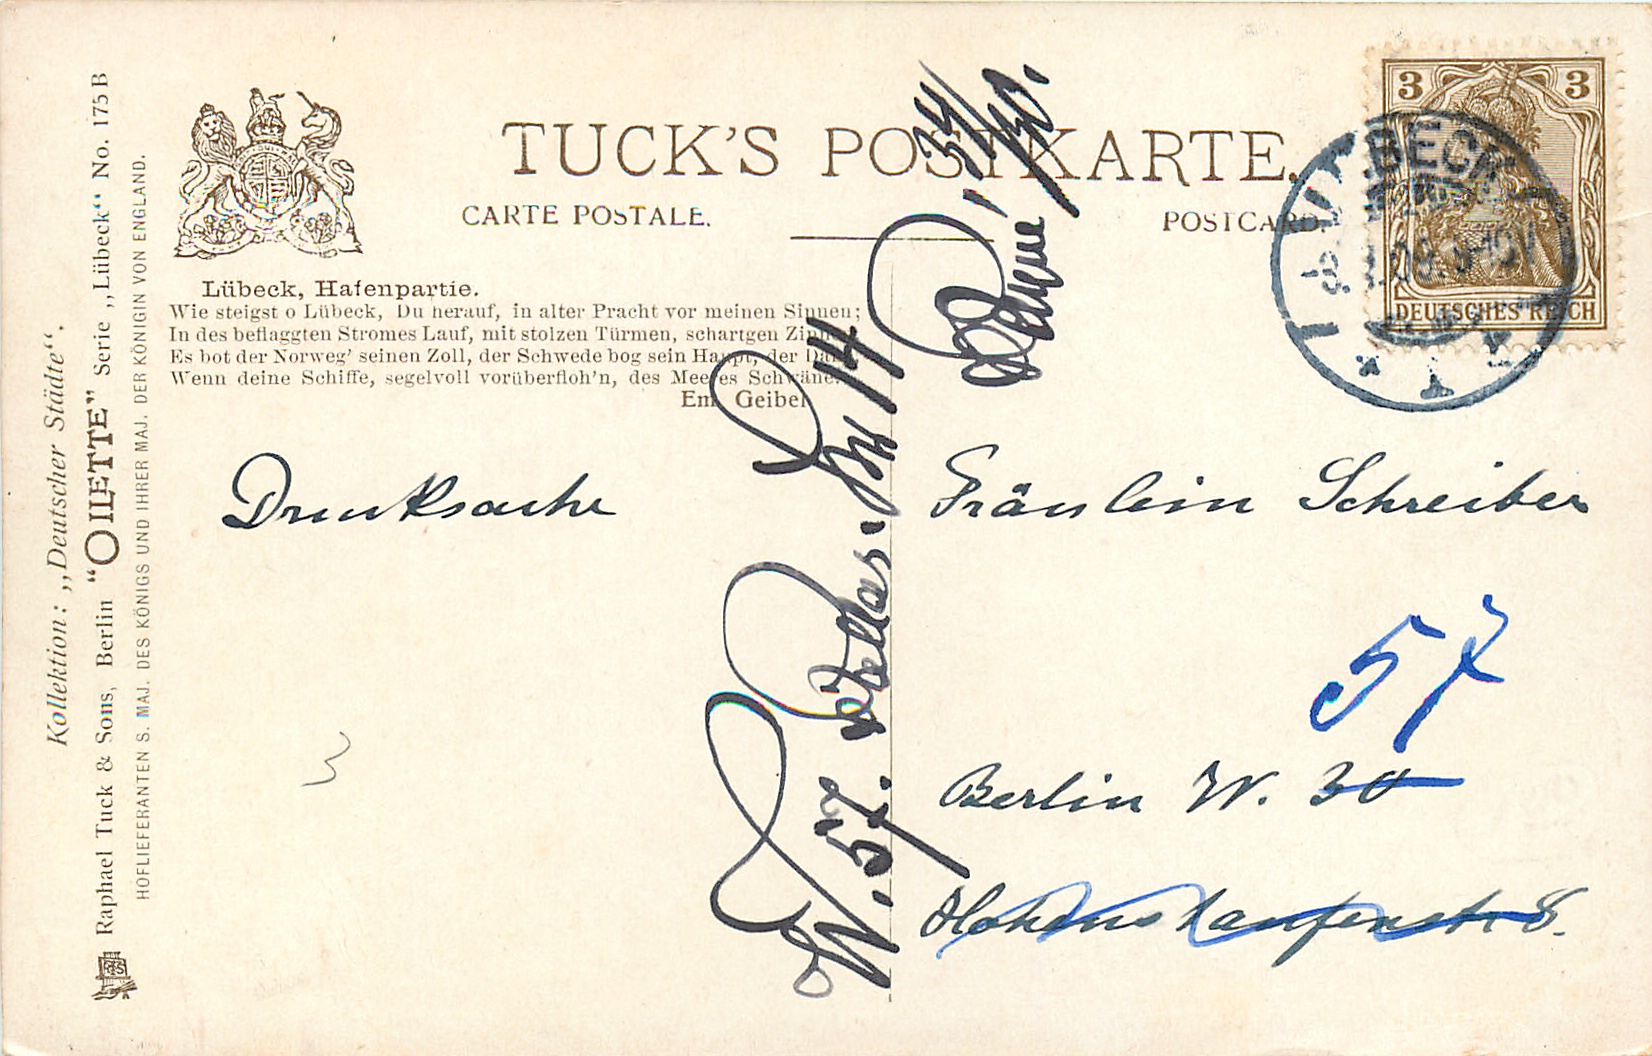 Kollektion: ,,Deutscher Städte".
Raphael Tuck & Sons, Berlin "OILETTE" Serie ,,Lübeck" No. 175 B
HOFLIEFERANTEN S. MAJ. DES KÖNIGS UND IHRER MAJ. DER KÖNIGIN VON ENGLAND.
TUCK'S POSTKARTE.
CARTE POSTALE.
POSTCARD
Lübeck, Hafenpartie.
Wie steigst o Lübeck, Du herauf, in alter Pracht vor meinen Sinnen;
In des beflaggten Stromes Lauf, mit stolzen Türmen, schartgen Zinnen
Es bot der Norweg' seinen Zoll, der Schwede bog sein Haupt, der Däne,
Wenn deine Schiffe, segelvoll vorüberfloh'n, des Meeres Schwäne.
Em. Geibel
3 3
DEUTSCHES REICH
LÜBECK
Drucksache
Fräulein Schreiber
57
Berlin W. 30
Hohenstaufenstr 8.
W. 57.
3